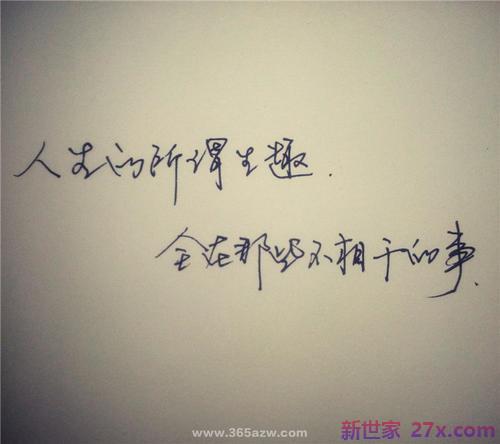 人生的所得生趣.
全在那些不相干的事.
www.365azw.com
新世家 27x.com